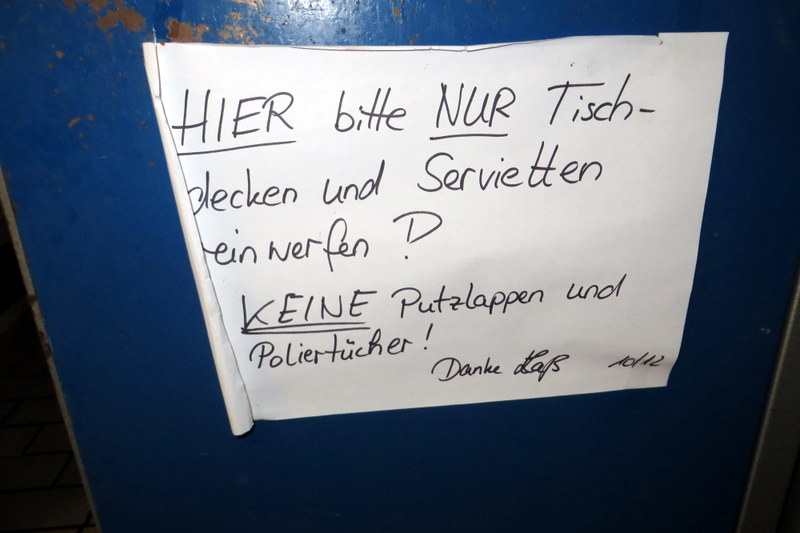 HIER bitte NUR Tisch-
decken und Servietten
einwerfen !
KEINE Putzlappen und
Poliertücher!
Danke Haß 10/12